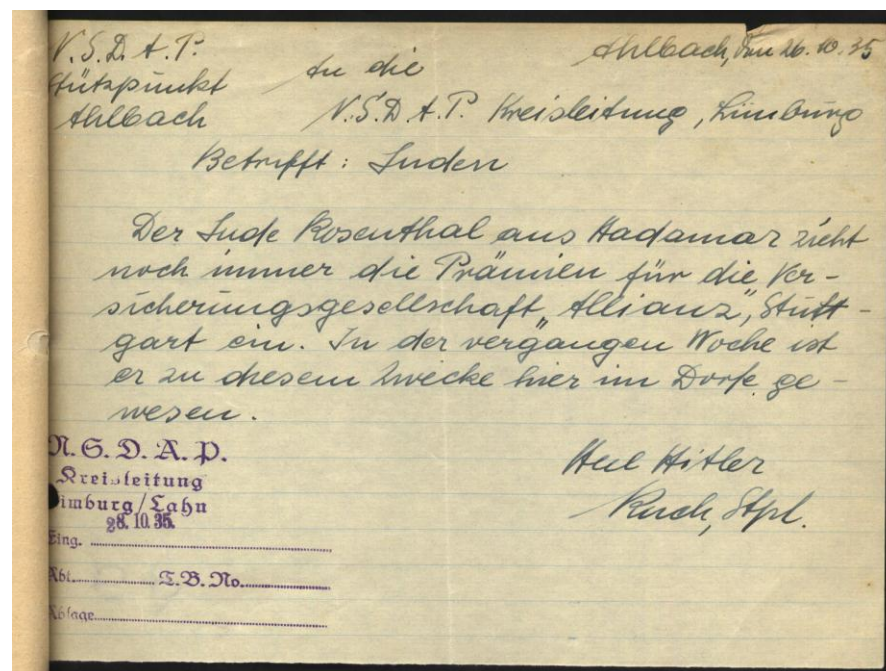 N.S.D.A.P.
Stützpunkt
Ahlbach
Ahlbach, den 26.10.35
An die
N.S.D.A.P. Kreisleitung, Limburg
Betrifft: Juden
Der Jude Rosenthal aus Hadamar zieht
noch immer die Prämien für die Ver-
sicherungsgesellschaft „Allianz", Stutt-
gart ein. In der vergangen Woche ist
er zu diesem Zwecke hier im Dorfe ge-
wesen.
Heil Hitler
Stpl.
N.S.D.A.P.
Kreisleitung
Limburg/Lahn
28.10.35.
Eing.
Abt. T.B.No.
Ablage